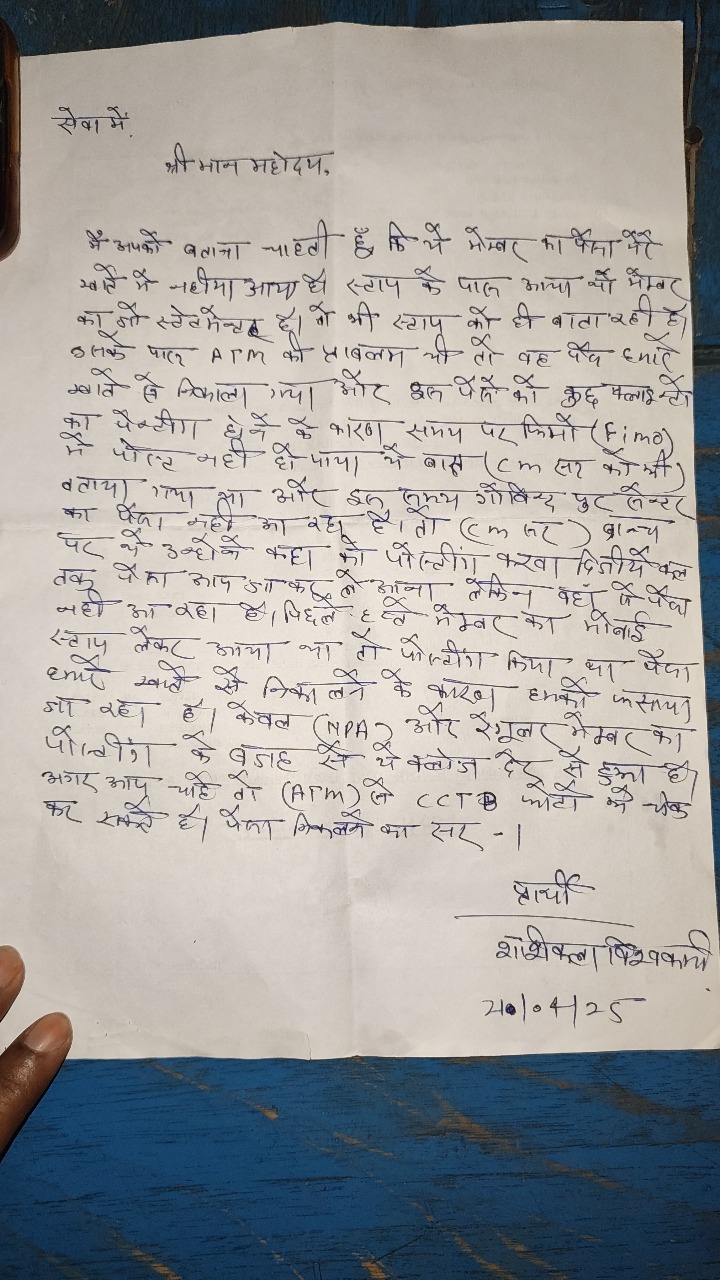 सेवा में,
श्री मान महोदय,
मैं आपको बताना चाहती हूँ कि ये मेम्बर का पैसा मेरे
खाते में नही आया है। स्टाप के पास आया थी मेम्बर
का जो स्टेटमेन्ट है। वो भी स्टाप को ही बाता रही है।
उसके पास ATM की प्राबलम थी तो वह पैसे हमारे
खाते से निकाला गया और इस पैसे को कुछ क्लाइन्टो
का पेन्डींग होने के कारण समय पर फिमो (Fimo)
में पोस्ट नही हो पाया ये बात (Cm सर को भी)
बताया गया था और इस समय गोविन्द पुर सेन्टर
का पैसा नही आ रहा है। तो (Cm सर) ब्रान्च
पर थे उन्होने कहा की पोस्टींग करवा दिजीये कल
तक पैसा आप जा कर ले आना लेकिन वहाँ से पैसा
नही आ रहा है। पिछले हप्ते मेम्बर का
स्टाप लेकर आया था तो पोस्टींग किया था पैसा
हमारे खाते से निकालने के कारण हमको फसाया
जा रहा है। केवल (NPA) और रेगुलर मेम्बर का
पोस्टींग के वजह से ये क्लोज देर से हुआ है।
अगर आप चाहे तो (ATM) से CCTB फोटो में चेक
कर सकते है। पैसा निकालने का सर -।
प्रार्थी
शशिकला विश्वकर्मा
20/04/25